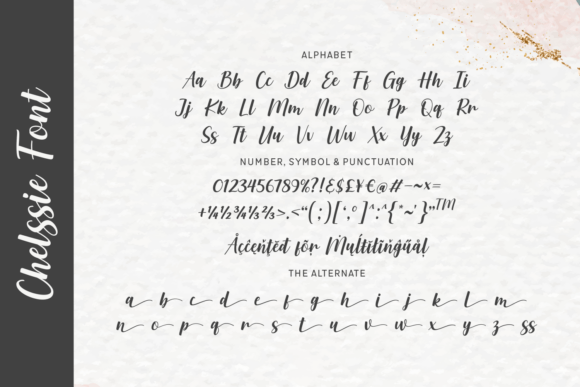 Chelssie Font
ALPHABET
Aa Bb Cc Dd Ee Ff Gg Hh Ii
Jj Kk Ll Mm Nn Oo Pp Qq Rr
Ss Tt Uu Vv Ww Xx Yy Zz
NUMBER, SYMBOL & PUNCTUATION
0123456789%?!&$£¥€@#-~x=
+¼½¾⅓⅔>.<“(;)[‘,°]^:^{*~’}”TM
Åçcëñţëd för Müľţïľïñğüåľ
THE ALTERNATE
a b c d e f g h i j k l m
n o p q r s t u v w x y z ss